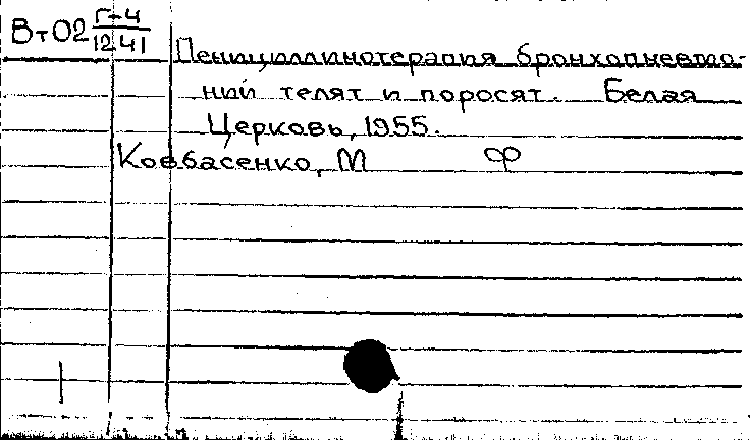 Вт02 Г-4
1241
Пенициллинотерапия бронхопневмо-
ний телят и поросят. Белая
Церковь, 1955.
Ковбасенко, М Ф